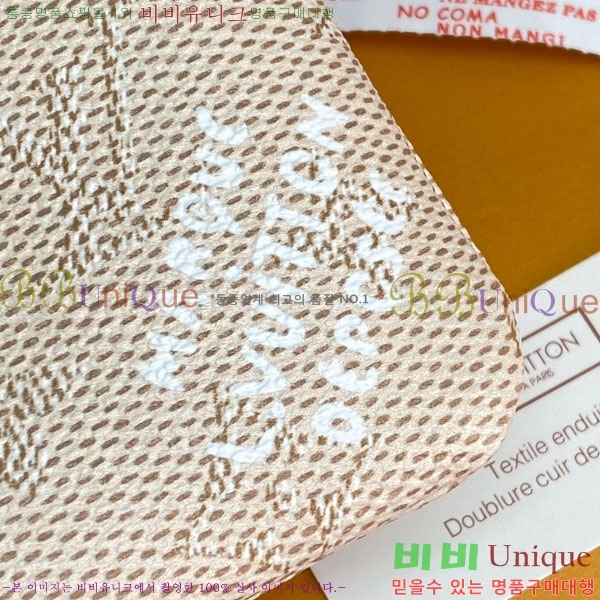 비비유니크 명품구매대행
NE MANGEZ PAS
NO COMA
NON MANGI
MARQUE
L.VUITTON
DÉPOSÉ
BBUniQue
최고의 품질 NO.1
BBUniQue
ITTON
PARIS
Textile endui
Doublure cuir de
비비 Unique
믿을수 있는 명품구매대행
-본 이미지는 비비유니크에서 촬영한 100% 실사 이미지 입니다.-